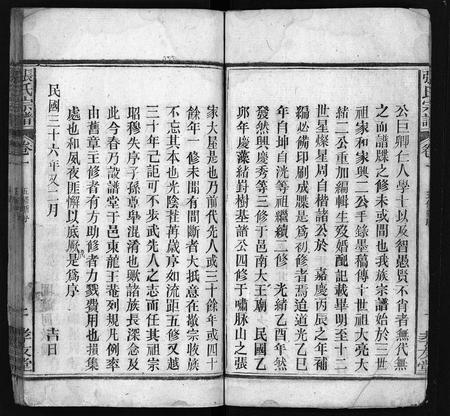 張氏宗譜
卷一
公巨卿仁人學士以及智愚賢不肖者無代無
之而譜牒之修未或間也我族宗譜始於三世
祖家和家興二公手錄墨稿傳十世祖大亮大
緒二公重加編輯生歿婚配記載畢明至十二
世星燦星周自楷諸公於 嘉慶丙辰之年補
闕
備印刷成牒是為初修者焉迨道光乙巳
年自坤自洸等祖繼續二修 光緒乙酉年然
發然興慶秀等三修于邑南大王廟 民國乙
卯年慶藻緒對樹基諸公四修于嘯脉山之張
家大屋是也乃前代先人或三十餘年或四十
餘年一修未聞有間斷者大抵意在敬宗收族
不忘其本也光陰荏苒歲序如流距五修又越
三十年己詎可不步武先人之志而任其祖宗
昭穆失序子孫尊卑混淆也歟諸族長深念及
此今春乃設譜堂于邑東龍王菴列規凡例率
由舊章王修諸者有方助修者力戮費用也損集
處也和夙夜匪懈以底厥是為序
民國三十六年又二月 吉日
張氏宗譜
卷一
一
孝友堂
孝友堂